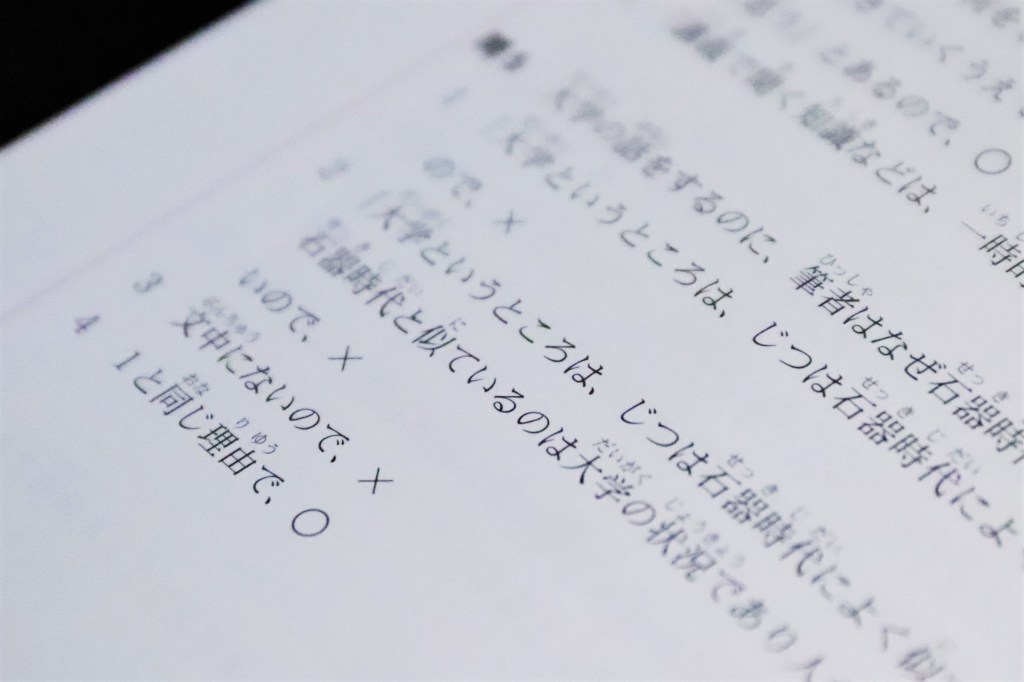 ていくうえ
とあるので、○
で聞く知識などは、一時的
大学の話をするのに、筆者はなぜ石器時
1 「大学というところは、じつは石器時代によ
ので、×
2 「大学というところは、じつは石器時代によく似
石器時代と似ているのは大学の状況であり人
いので、×
3 文中にないので、×
4 1と同じ理由で、○